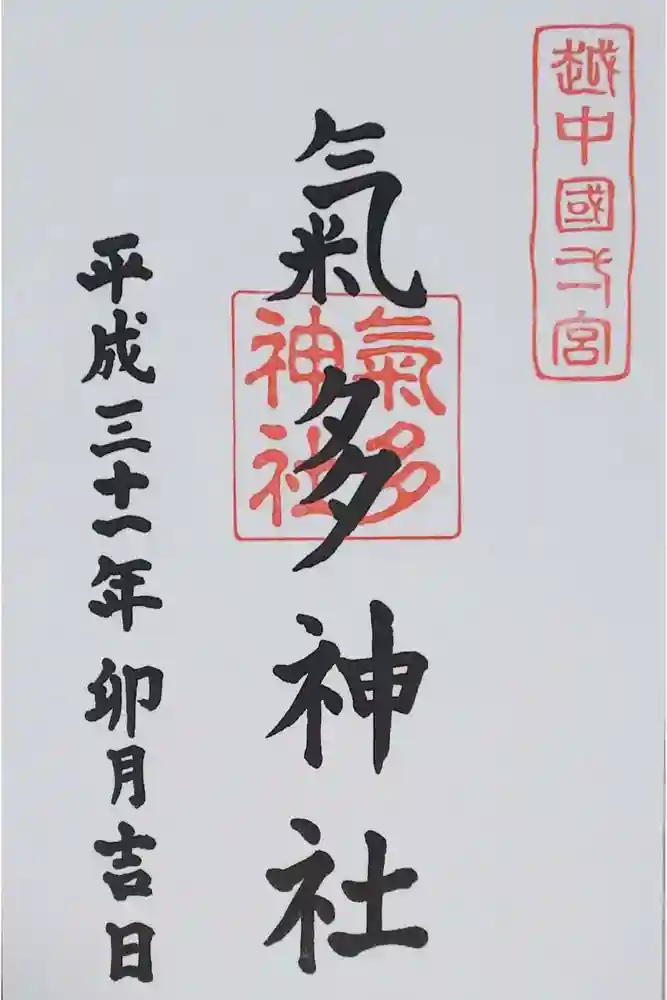 越中國弌宮
氣多神社
氣多
神社
平成三十一年 卯月吉日